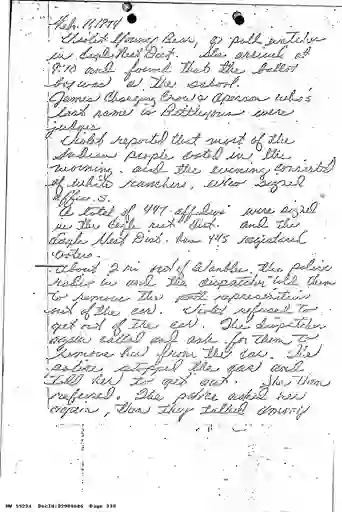 Feb. 7, 1974
Violet Young Bear, a poll watcher
in Eagle Nest Dist. She arrived at
9:30 and found that the ballot
box was at the school.
James Charging Crow & a person who's
last name is Bettleyoun were
judges.
Violet reported that most of the
Indian people voted in the
morning. and the evening consisted
of white ranchers, who signed
A total of 447 were signed
in the Eagle nest Dist. and the
Eagle Nest Dist. has 445 registered
voters.
About 2 mi out of Wanblee, the police
radio in and the dispatcher told them
to remove the representative
out of the car. Violet refused to
get out of the car. The dispatcher
again called and ask for them to
remove her from the car. The
police stopped the car and
told her to get out. She then
refused. The police asked her
again, then they talked among
NW 55234 DocId:32989646 Page 330